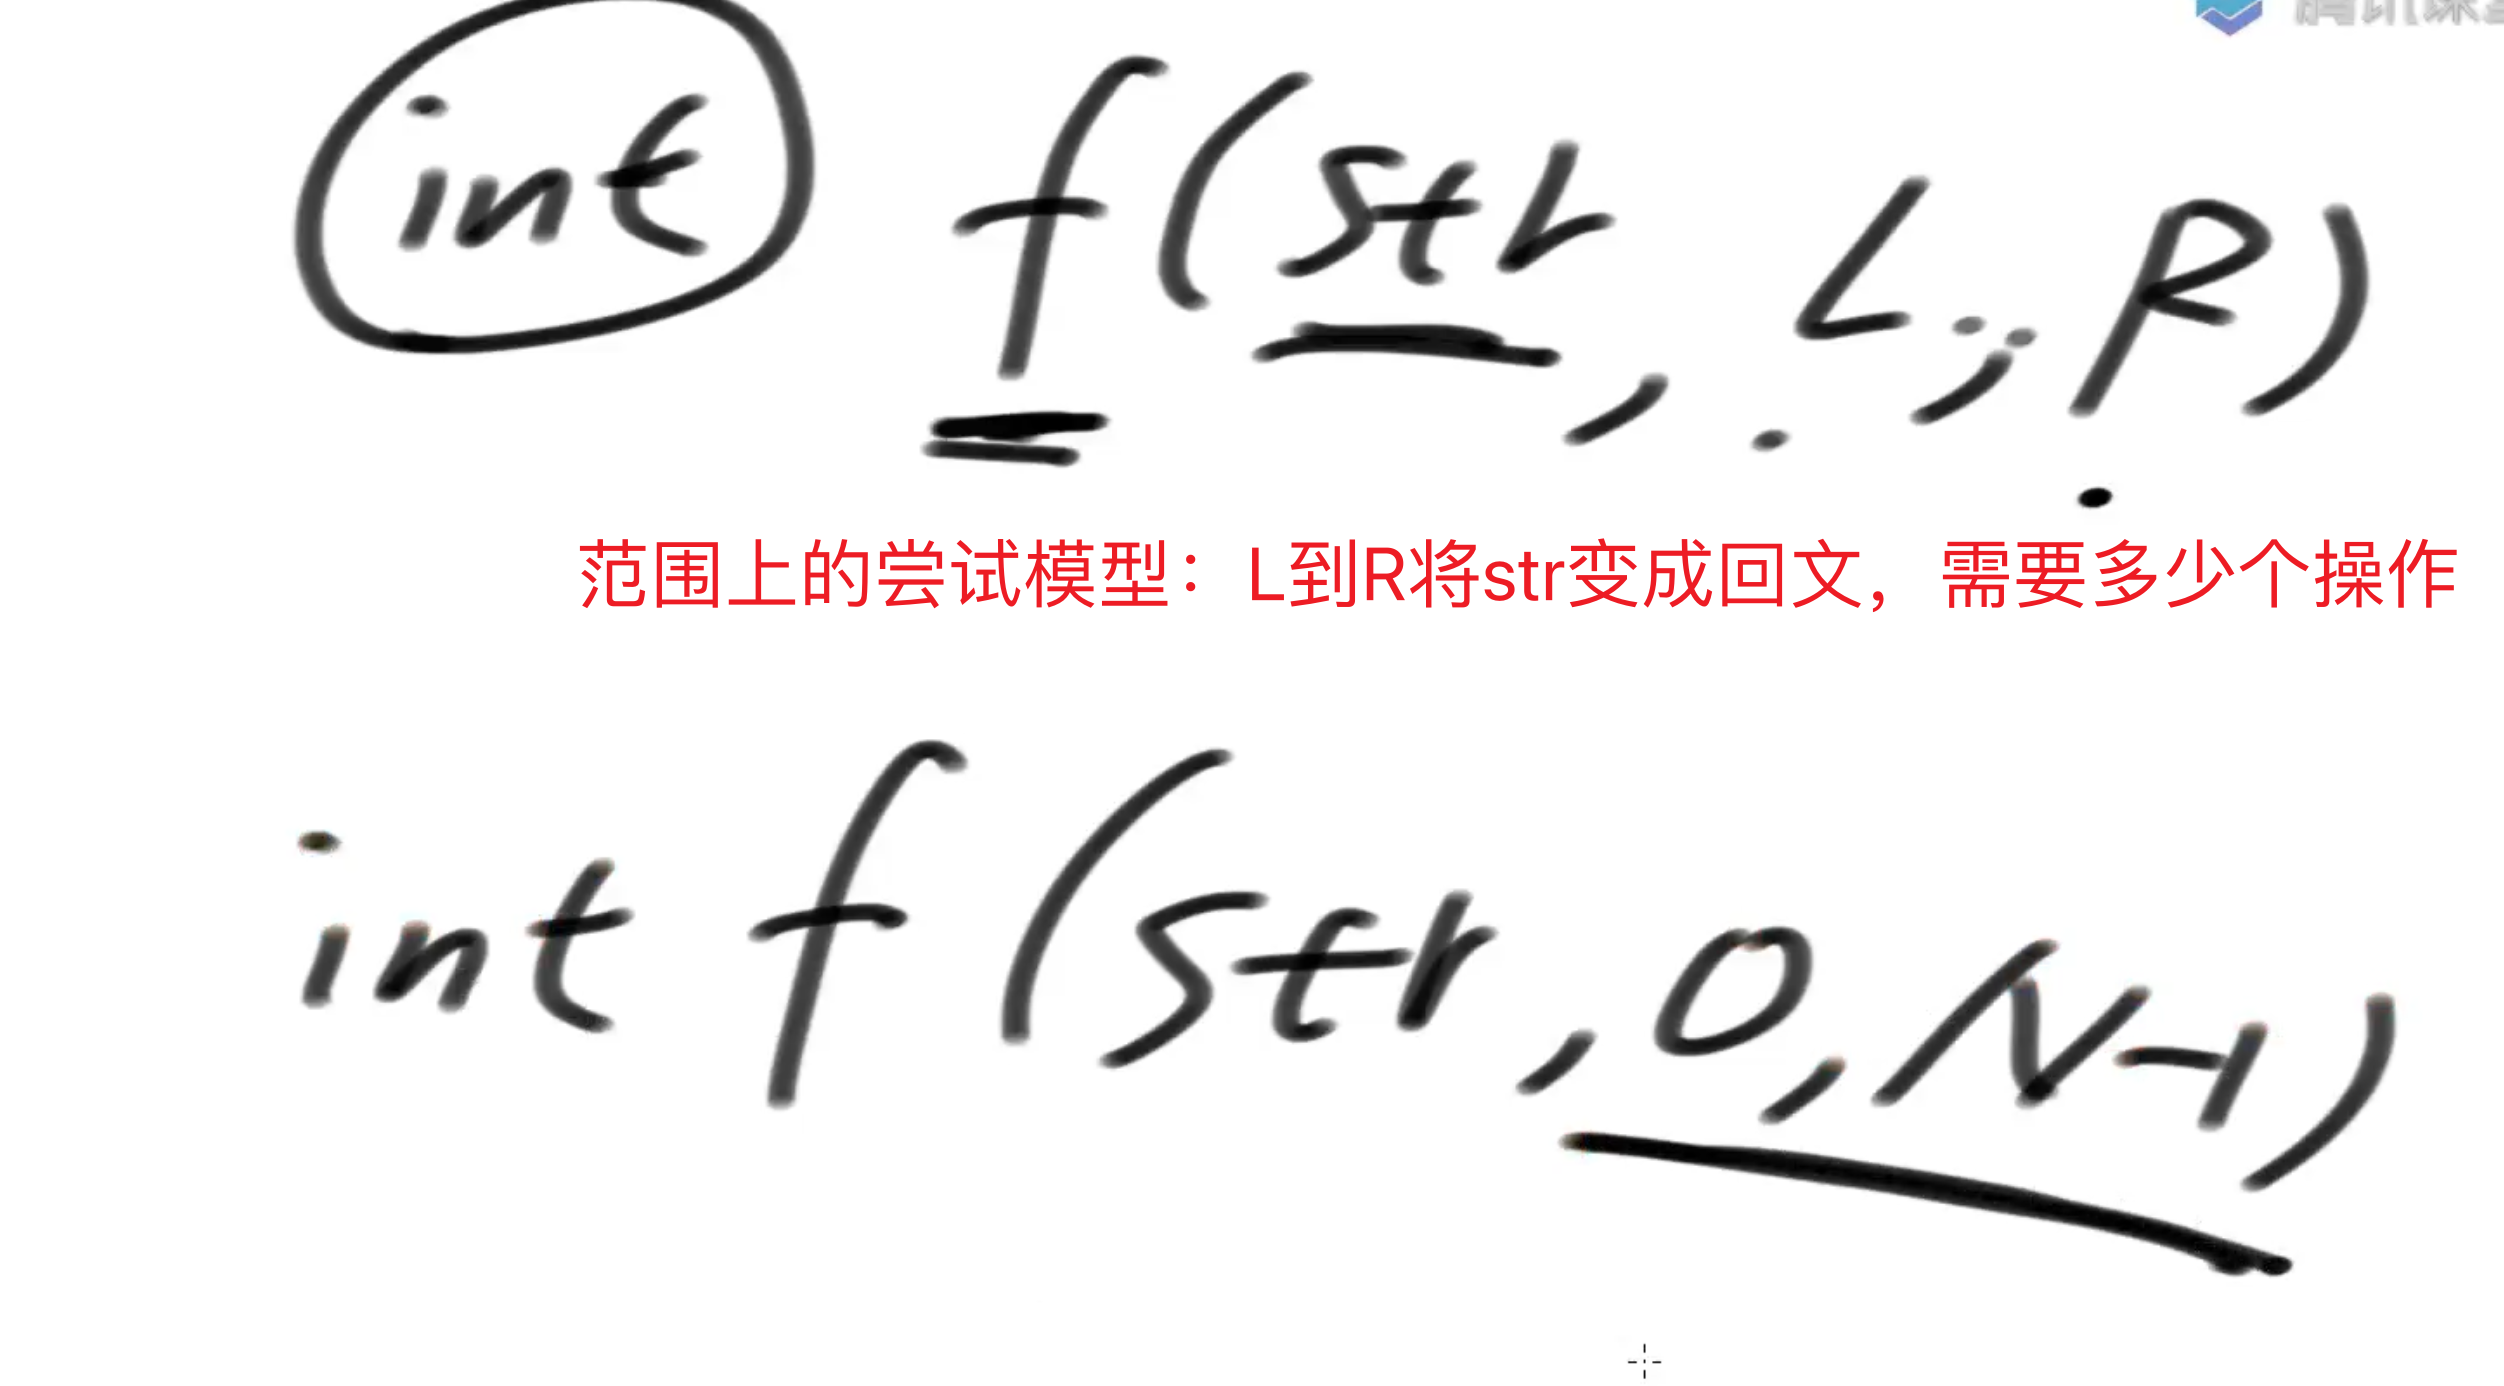 腾讯课堂
int f(str, L, R)
范围上的尝试模型：L到R将str变成回文，需要多少个操作
int f(str, 0, N-1)